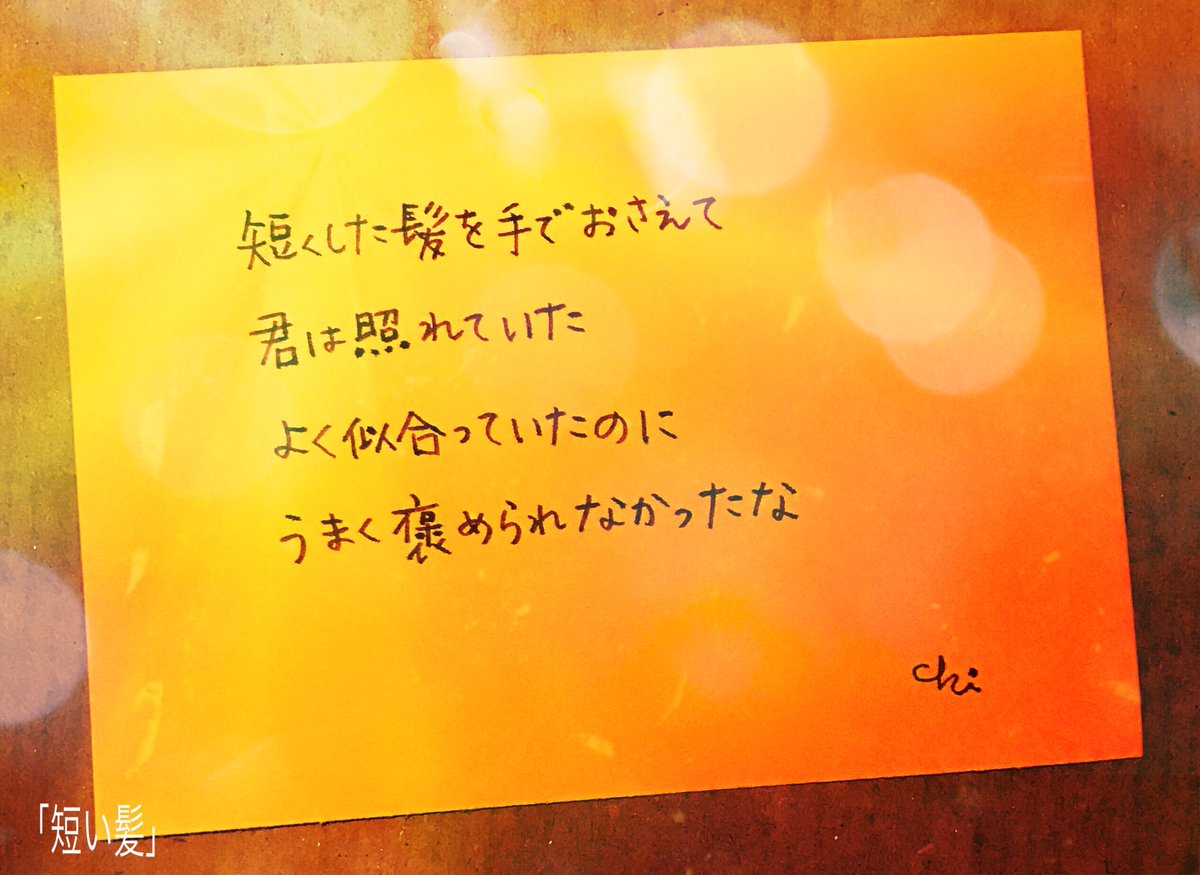 短くした髪を手でおさえて
君は照れていた
よく似合っていたのに
うまく褒められなかったな
chi
「短い髪」